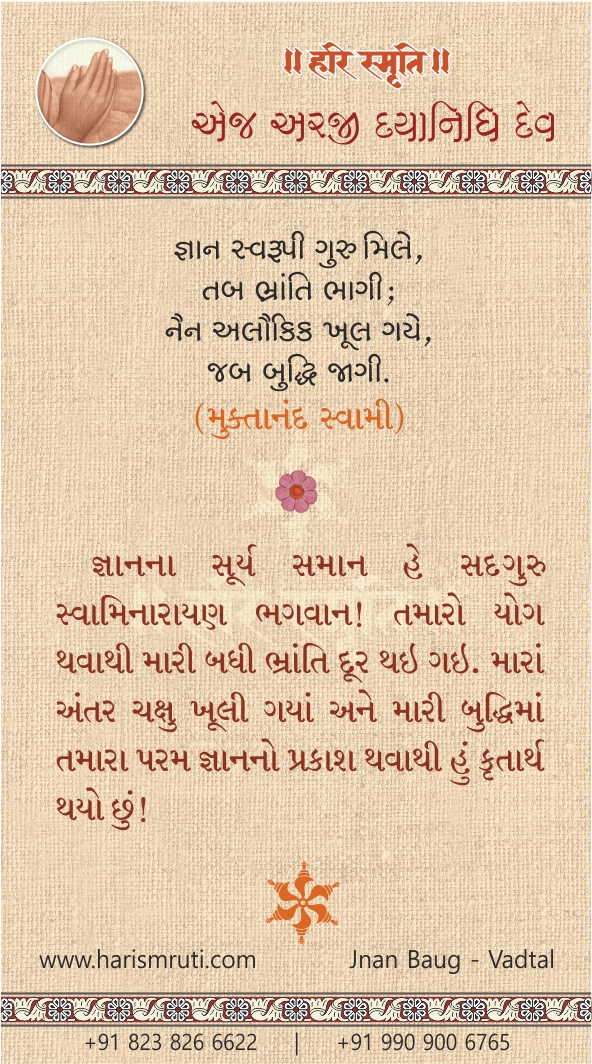 ॥ हरि स्मृति ॥
એજ અરજી દયાનિધિ દેવ
જ્ઞાન સ્વરૂપી ગુરુ મિલે,
તબ ભ્રાંતિ ભાગી;
નૈન અલૌકિક ખૂલ ગયે,
જબ બુદ્ધિ જાગી.
(મુક્તાનંદ સ્વામી)
જ્ઞાનના સૂર્ય સમાન હે સદગુરુ
સ્વામિનારાયણ ભગવાન! તમારો યોગ
થવાથી મારી બધી ભ્રાંતિ દૂર થઇ ગઇ. મારાં
અંતર ચક્ષુ ખૂલી ગયાં અને મારી બુદ્ધિમાં
તમારા પરમ જ્ઞાનનો પ્રકાશ થવાથી હું કૃતાર્થ
થયો છું!
www.harismruti.com Jnan Baug - Vadtal
+91 823 826 6622 | +91 990 900 6765